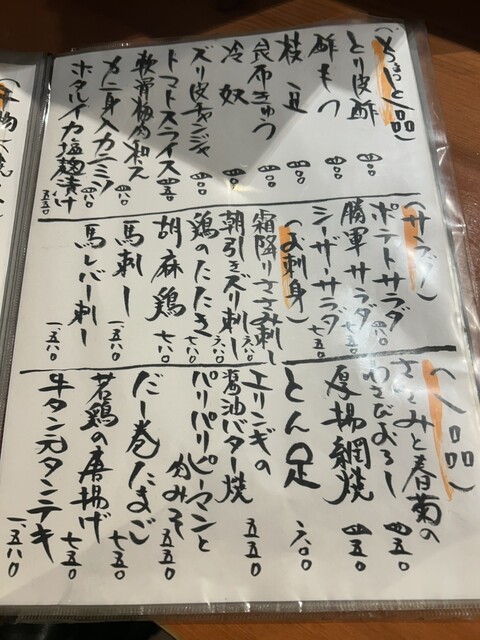 （ちょっと一品）
とり皮酢 四〇〇
酢もつ 四〇〇
枝豆 四〇〇
昆布きゅう 四〇〇
冷奴 四〇〇
ズリ皮チャンジャ 四〇〇
トマトスライス 四五〇
軟骨梅肉和え
カニ身入カニミソ 四八〇
ホタルイカ塩麹漬け 五五〇
（サラダ）
ポテトサラダ 四八〇
勝軍サラダ 七五〇
シーザーサラダ 七五〇
（お刺身）
霜降りささみ刺し 六八〇
朝引きズリ刺し 六八〇
鶏のたたき 七八〇
胡麻鶏 七八〇
馬刺し 一、五八〇
馬レバー刺し 一、五八〇
（一品）
ささみと春菊の
わさびおろし 四五〇
厚揚網焼 四五〇
とん足 六〇〇
エリンギの
醤油バター焼 五五〇
パリパリピーマンと
肉みそ 五五〇
だし巻たまご 七五〇
若鶏の唐揚げ 七五〇
牛タン元タンテキ 一、五八〇